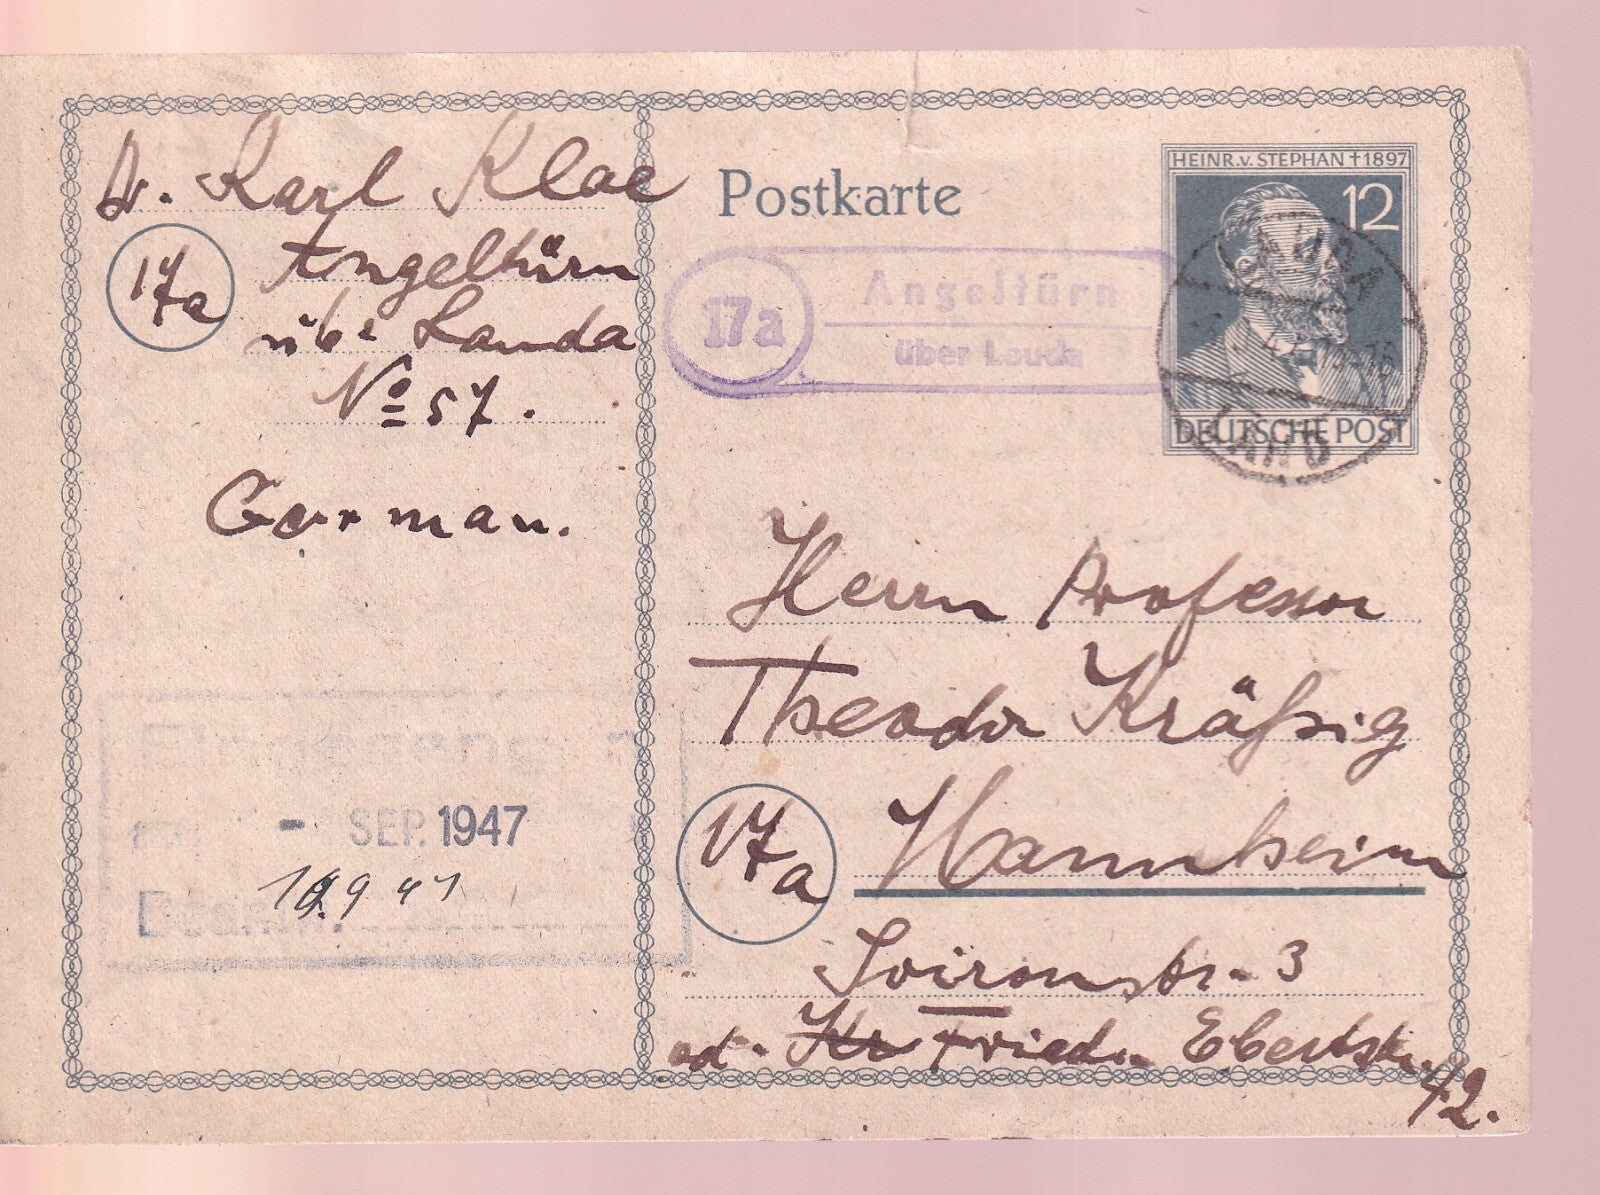 Dr. Karl Kloe
17a
Angeltürn
über Lauda
Nº 57.
German.
Postkarte
HEINR.v. STEPHAN † 1897
12
DEUTSCHE POST
17a
Angeltürn
über Lauda
LAUDA
LAND
Herrn Professor
Theodor Kräßig
17a
Mannheim
Soironstr. 3
od. Friedr. Ebertstr. 42.
Eingegangen
- SEP. 1947
10.9 47